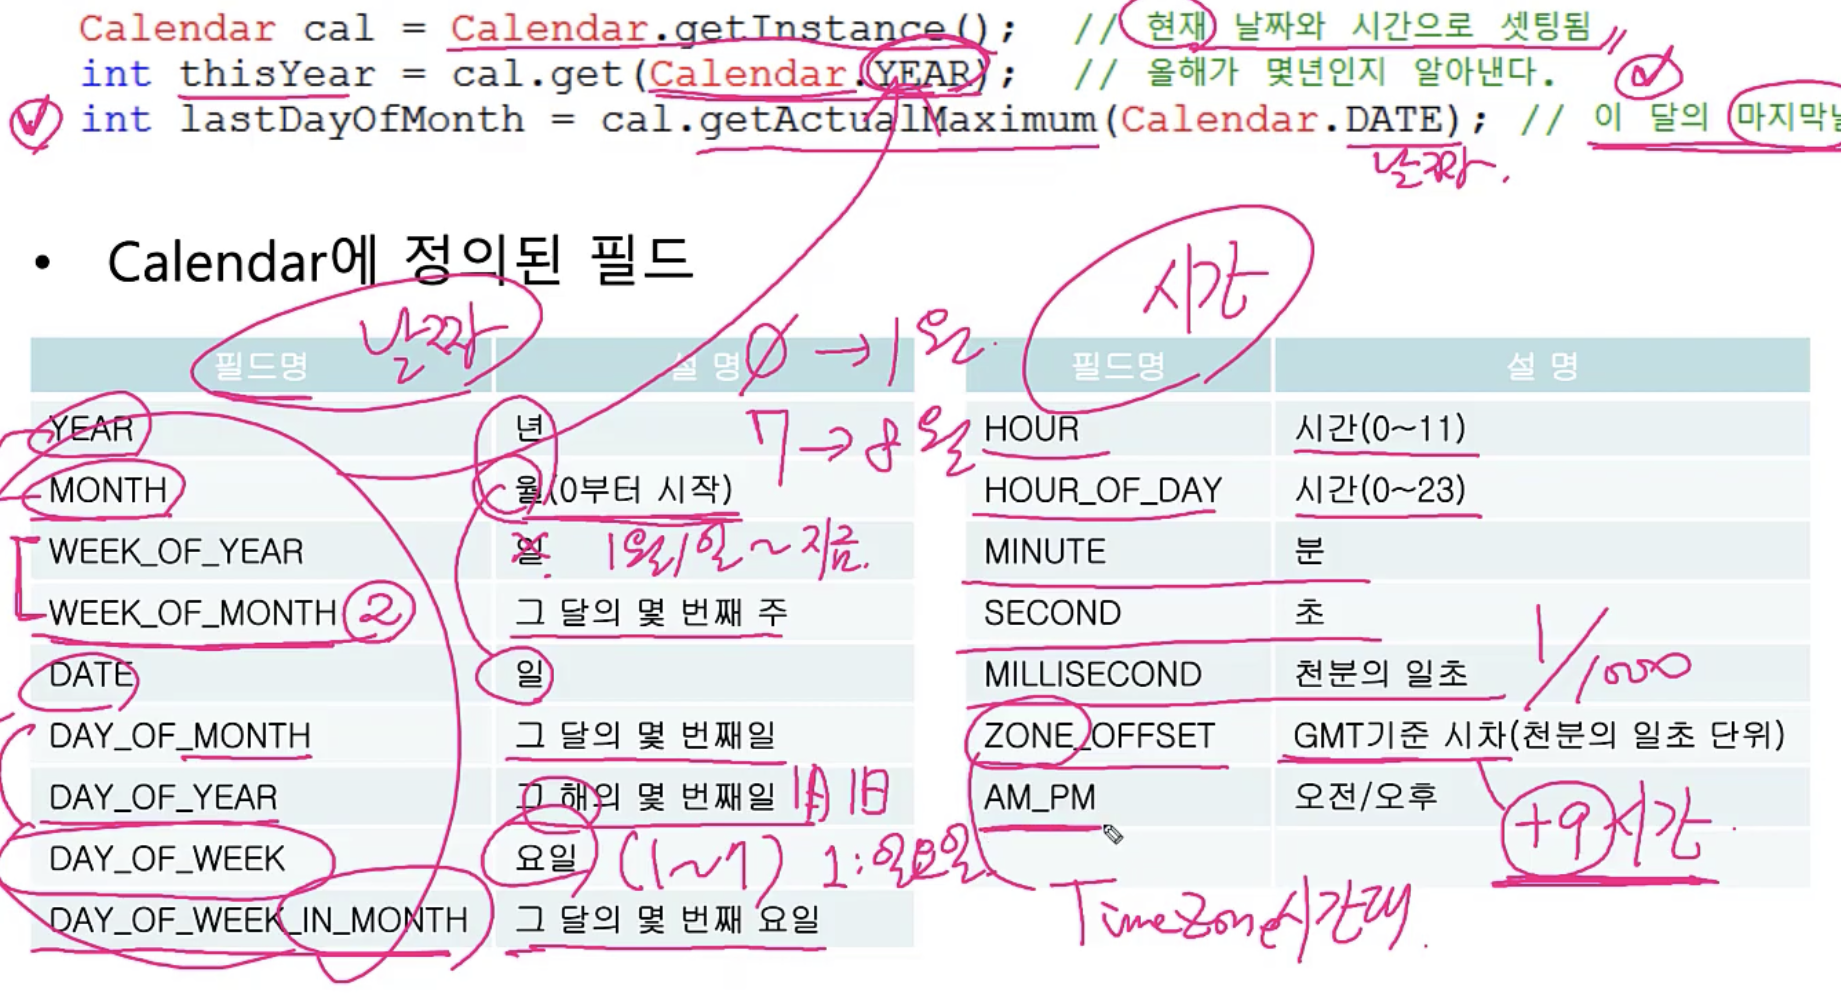 Calendar cal = Calendar.getInstance(); // 현재 날짜와 시간으로 셋팅됨
int thisYear = cal.get(Calendar.YEAR); // 올해가 몇년인지 알아낸다.
int lastDayOfMonth = cal.getActualMaximum(Calendar.DATE); // 이 달의 마지막날
날짜.
• Calendar에 정의된 필드
날짜
시간
필드명 설 명
0 → 1월.
YEAR 년
7 → 8월
MONTH 월(0부터 시작)
WEEK_OF_YEAR 일
1월1일 ~ 지금.
WEEK_OF_MONTH ② 그 달의 몇 번째 주
DATE 일
DAY_OF_MONTH 그 달의 몇 번째일
DAY_OF_YEAR 그 해의 몇 번째일
DAY_OF_WEEK 요일 (1~7) 1:일요일
DAY_OF_WEEK_IN_MONTH 그 달의 몇 번째 요일
필드명 설 명
HOUR 시간(0~11)
HOUR_OF_DAY 시간(0~23)
MINUTE 분
SECOND 초
MILLISECOND 천분의 일초 1/1000
ZONE_OFFSET GMT기준 시차(천분의 일초 단위)
AM_PM 오전/오후
+9시간.
TimeZone시간대.